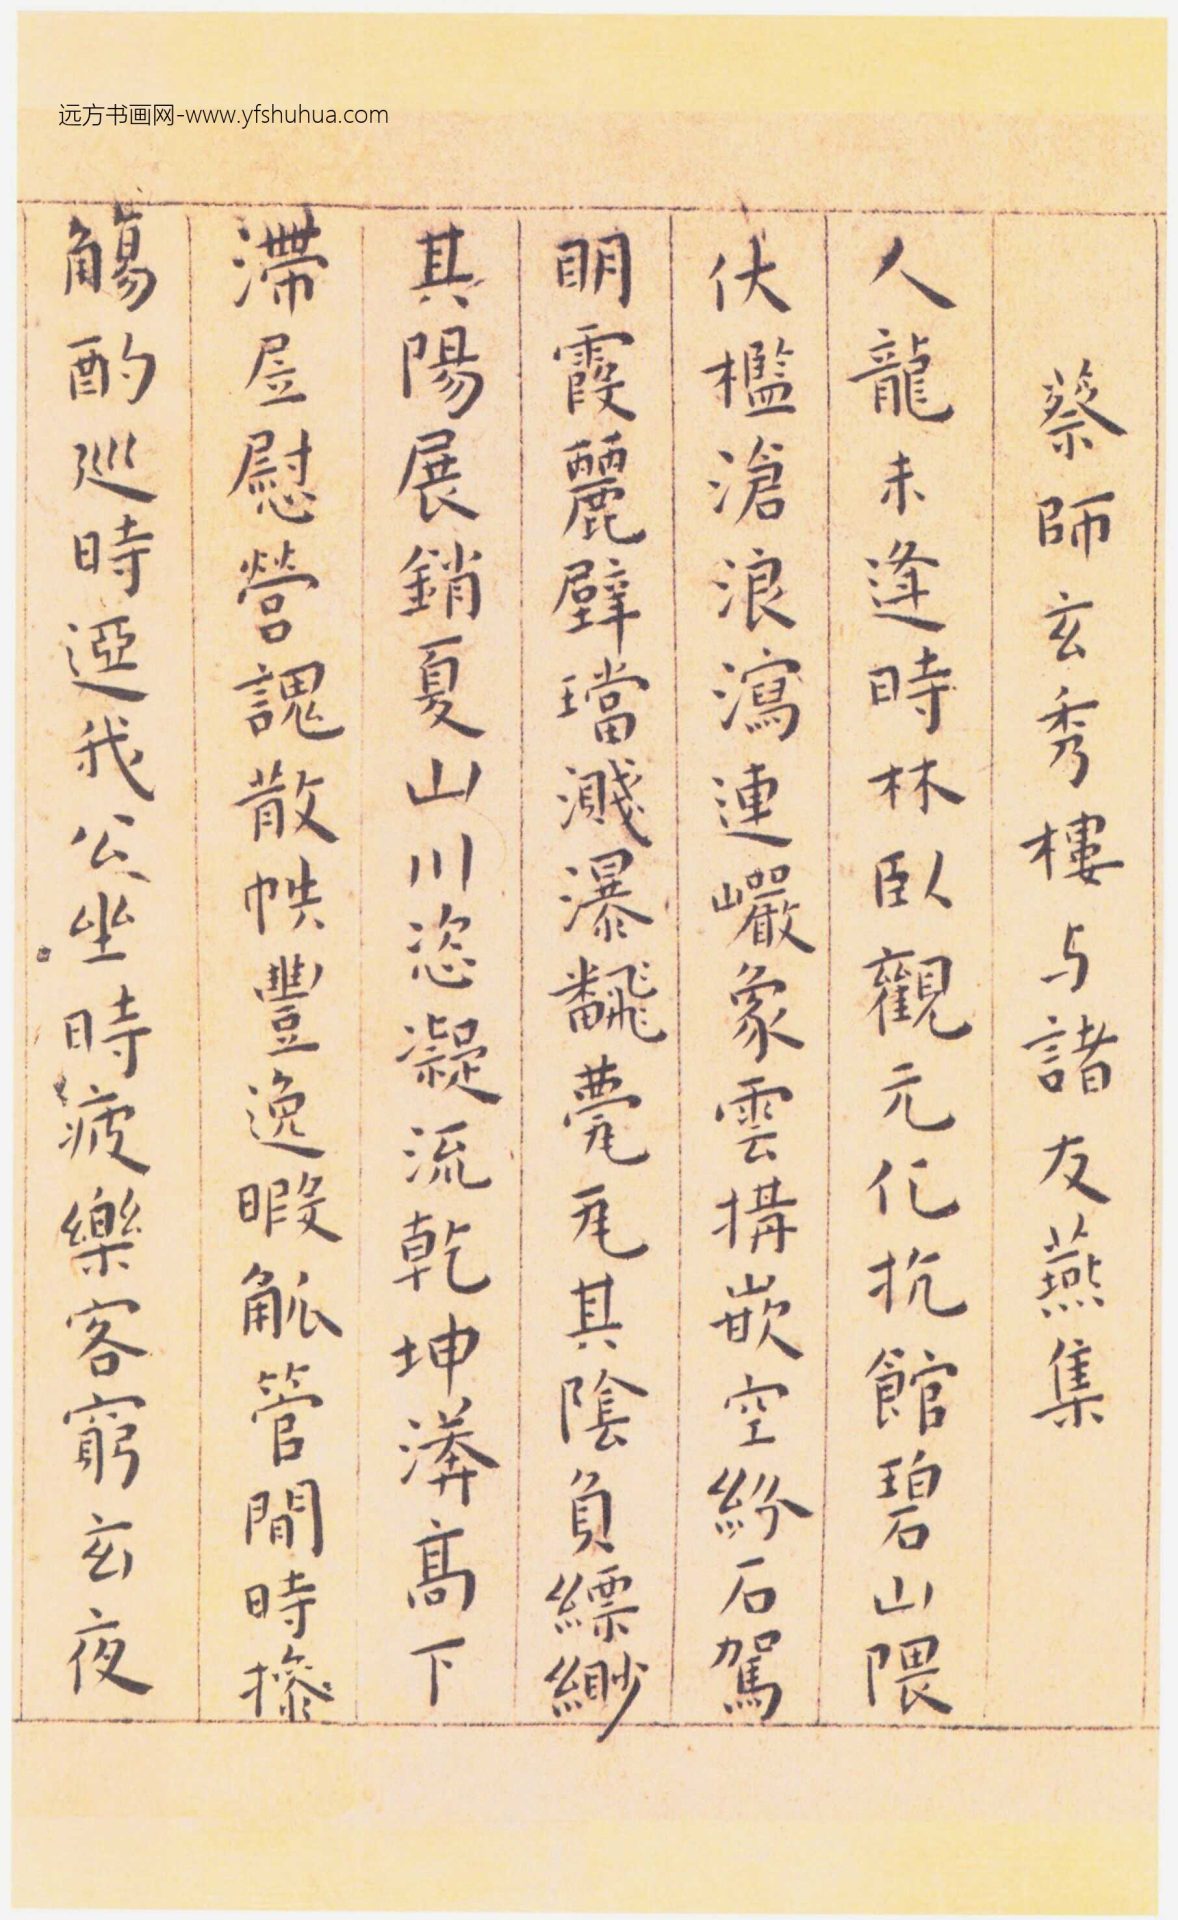 远方书画网-www.yfshuhua.com
蔡師玄秀樓与諸友燕集
人龍未逢時林臥觀元化抗館碧山隈
伏檻滄浪瀉連巖象雲搆嵌空紛石駕
明霞麗壁璫濺瀑飜甍瓦其陰負縹緲
其陽展銷夏山川恣凝流乾坤溝高下
滯慰營魂散帙豐逸暇觚管間時操
觴酌巡時迓我公坐時疲樂客窮玄夜